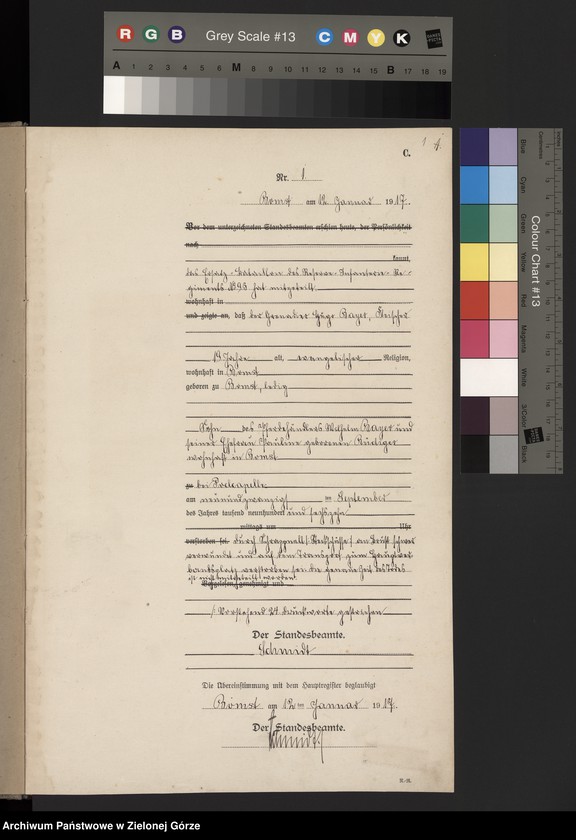 R G B Grey Scale #13 C M Y K
A 1 2 3 4 5 6 M 8 9 10 11 12 13 14 15 B 17 18 19
C.
Nr. 1
Bomst am 12. Januar 1917.
Vor dem unterzeichneten Standesbeamten erschien heute, der Persönlichkeit
nach
kannt,
des Ersatz-Bataillon des Reserve-Infanterie-Re-
giments hat mitgeteilt
wohnhaft in
und zeigte an, daß der Grenadier Hugo Bayer, Fleischer
19 Jahre alt, evangelischer Religion,
wohnhaft in Bomst
geboren zu Bomst, ledig
Sohn des Pferdehändlers Wilhelm Bayer und
seiner Ehefrau Pauline geborenen Rüdiger
wohnhaft in Bomst
zu bei Poelcapelle
am neunundzwanzig September
des Jahres tausend neunhundert und sechszehn
mittags um Uhr
verstorben sei. durch Schrapnell an Brust schwer
verwundet und auf dem Transport zum Hauptver-
bandsplatz verstorben sei die genaue Zeit des Todes
ist nicht mitgeteilt worden.
Vorgelesen, genehmigt und
Vorstehend 24 Druckworte gestrichen
Der Standesbeamte.
Schmidt
Die Übereinstimmung mit dem Hauptregister beglaubigt
Bomst am 12ten Januar 1917.
Der Standesbeamte.
Schmidt
Colour Chart #13
Blue
Cyan
Green
Yellow
Red
Magenta
White
3/Color
Black
Centimetres
Archiwum Państwowe w Zielonej Górze